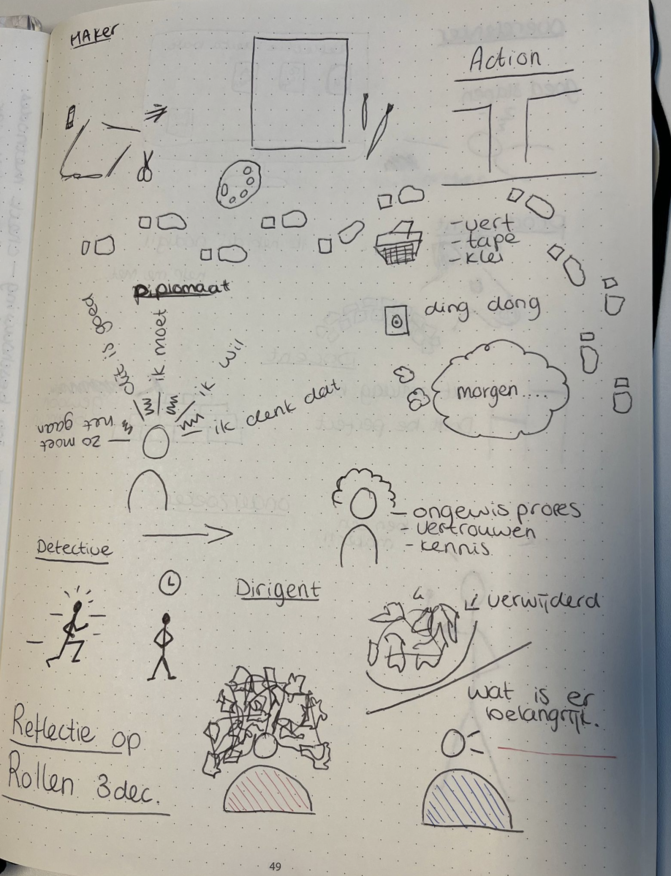 MAKER
Action
- vert
- tape
- klei
Diplomaat
dit is goed
ik moet
ik wil
ik denk dat
zo moet
het gaan
ding dong
morgen....
- ongewis proces
- vertrouwen
- kennis
Detective
Dirigent
verwijderd
wat is er
belangrijk.
Reflectie op
Rollen 3 dec.
49